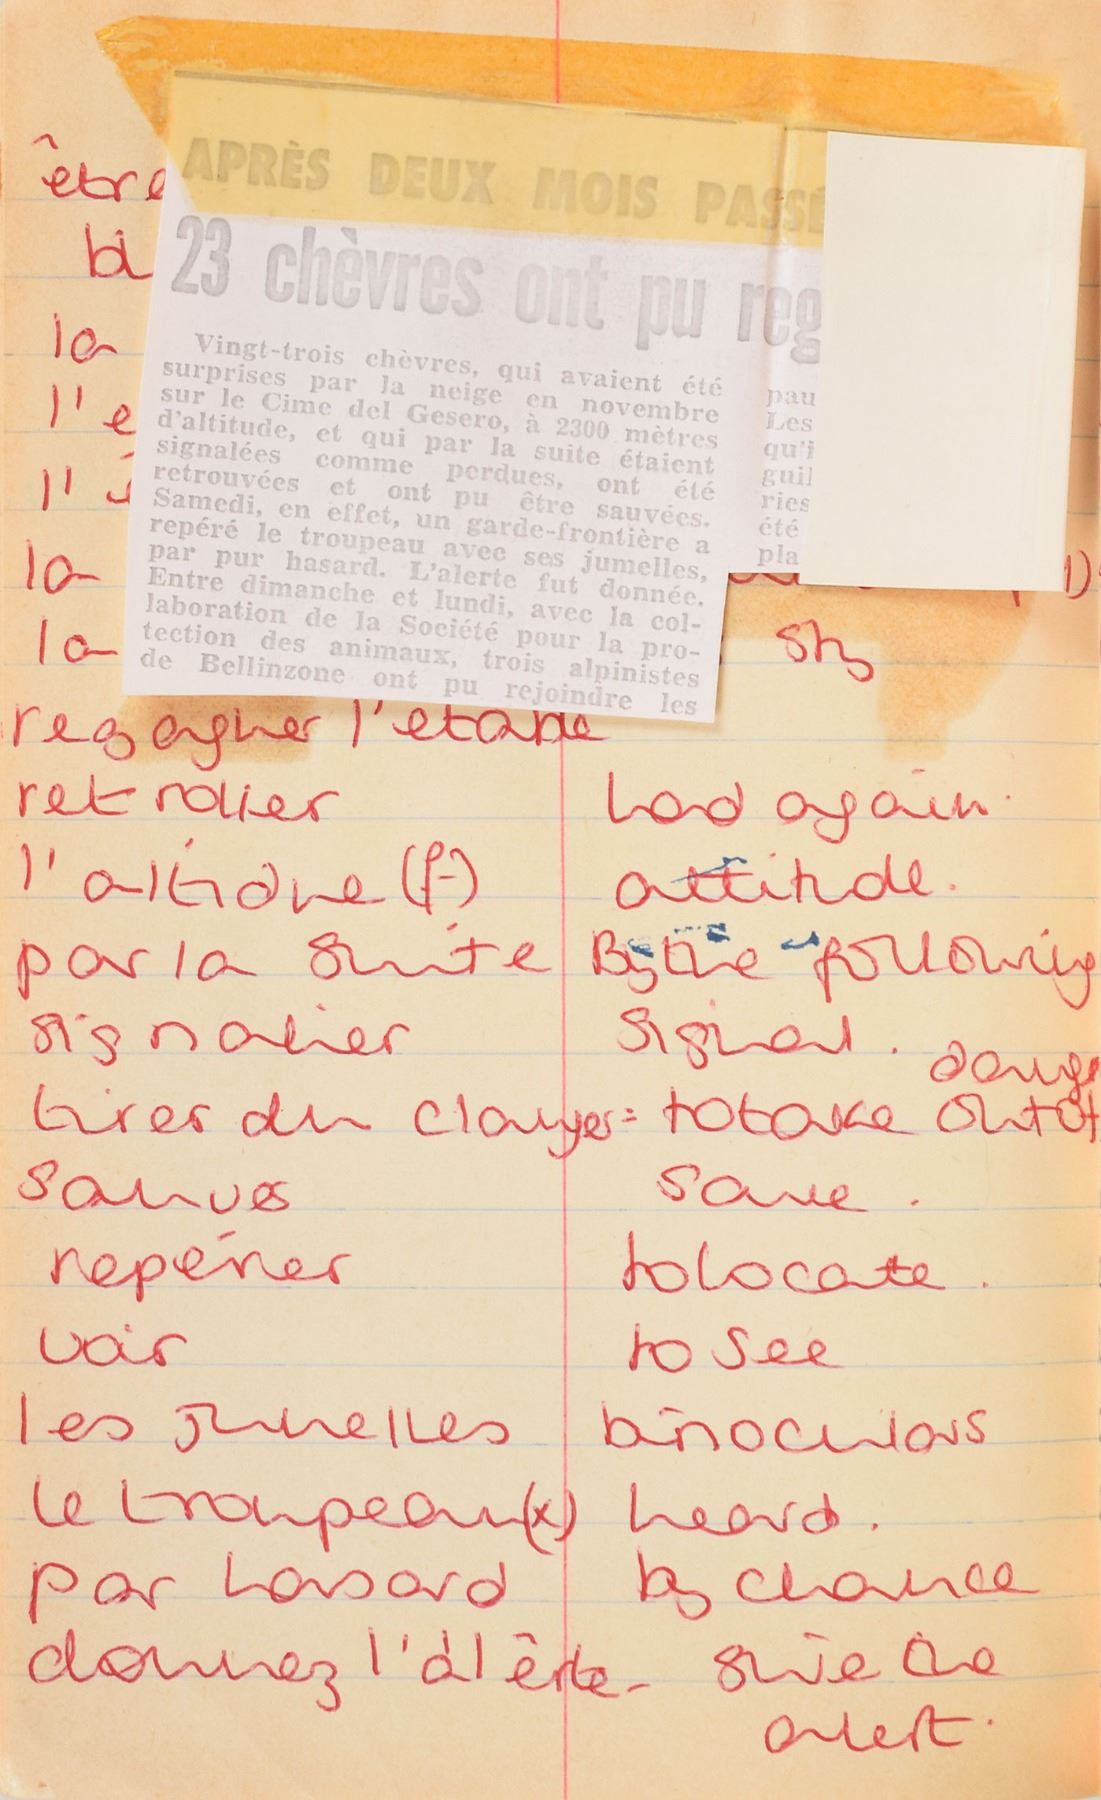 APRÈS DEUX MOIS PASSÉ
23 chèvres ont pu reg
Vingt-trois chèvres, qui avaient été
surprises par la neige en novembre
sur le Cime del Gesero, à 2300 mètres
d'altitude, et qui par la suite étaient
signalées comme perdues, ont été
retrouvées et ont pu être sauvées.
Samedi, en effet, un garde-frontière a
repéré le troupeau avec ses jumelles,
par pur hasard. L'alerte fut donnée.
Entre dimanche et lundi, avec la col-
laboration de la Société pour la pro-
tection des animaux, trois alpinistes
de Bellinzone ont pu rejoindre les
pau
Les
qu'i
guil
ries
été
pla
être
bl
la
l'e
l'é
la
la sty
regagner l'etable
again.
l'altidue (f) attitude.
par la suite By the following
signaler signal.
tirer du = to take out of
save.
repérer to locate.
voir to see
les jumelles binoculars
le troupeau(x) heard.
par hasard by chance
donnez l'álêrte- give the
alert.